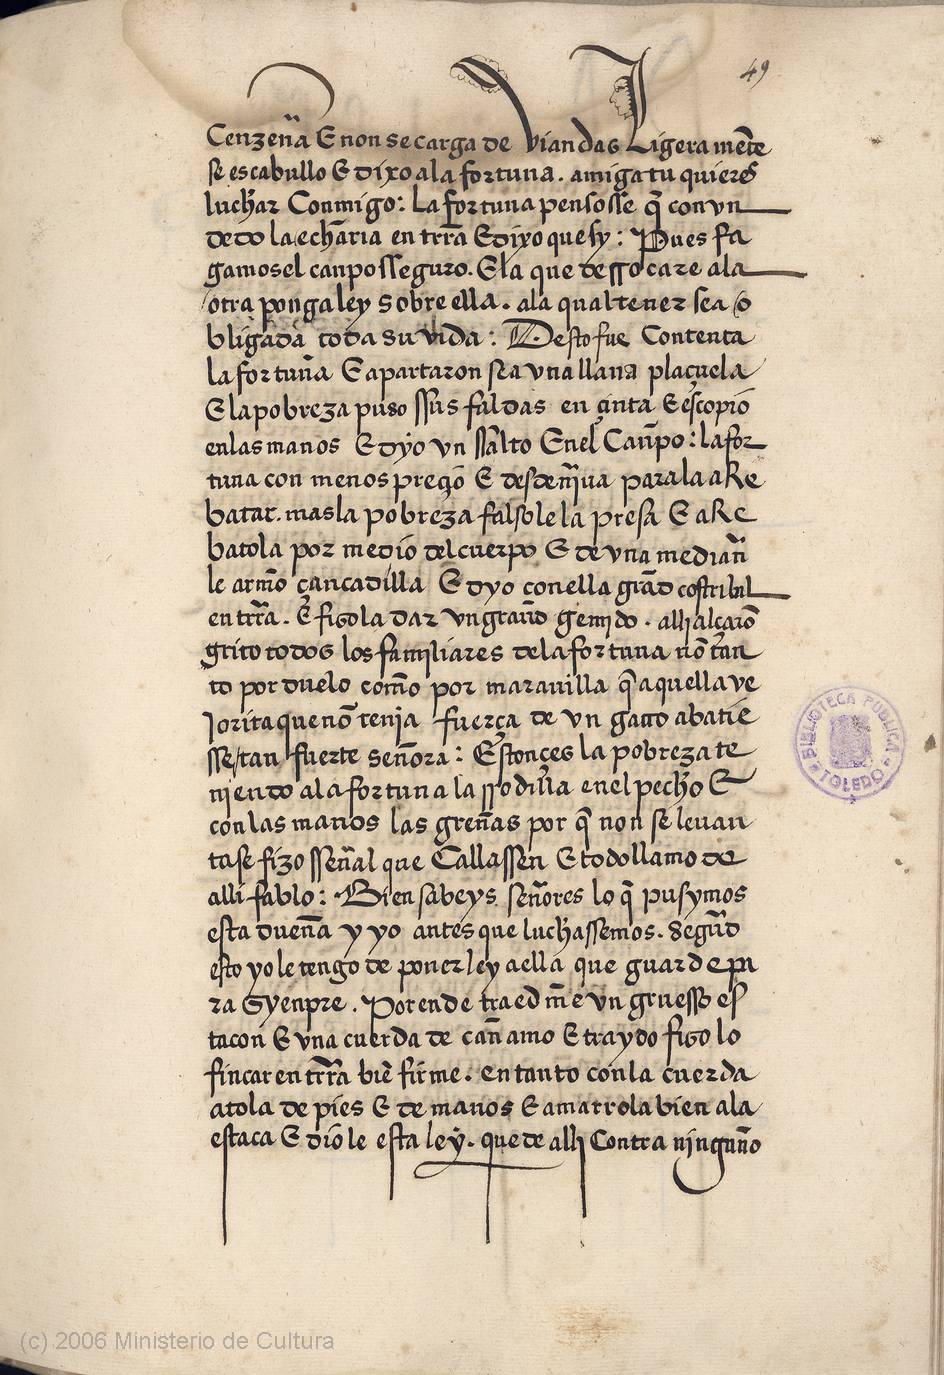 49
Cenzeña E non se carga de viandas Ligera mẽte
se escabullo E dixo a la fortuna . amiga tu quieres
luchar Conmigo : La fortuna pensosse q̃ con vn
dedo la echaria en trr̃a E dixo que sy : Pues fa
gamos el canpo sseguro . E la que derrocare a la
otra ponga ley sobre ella . a la qual tener sea o
bligada toda su vida : Desto fue Contenta
la fortuna E apartaron se a vna llana plaçuela
E la pobreza puso ssus faldas en çinta E escopio
en las manos E dyo vn salto En el Canpo : la for
tuna con menos preçio E desden yua para la aRe
batar . mas la pobreza falsole la presa E aRe
batola por medio del cuerpo E de vna median
le armo çancadilla E dyo con ella grãd costribal
en trr̃a . E fizola dar vn grand gemido . alli alçarõ
grito todos los familiares de la fortuna nõ tan
to por duelo como por marauilla q̃ aquella ve
jorita que nõ tenia fuerça de vn gato abatie
sse tan fuerte señora : Estonçes la pobreza te
niendo a la fortuna la rrodilla en el pecho E
con las manos las greñas por q̃ non se leuan
tase fizo sseñal que Callassen E todo llamo de
alli fablo : Bien sabeys señores lo q̃ pusymos
esta dueña y yo antes que luchassemos . Segũd
esto yo le tengo de poner ley a ella que guarde pa
ra syenpre . Por ende traed me vn gruesso es
tacon E vna cuerda de cañamo E traydo fizo lo
fincar en trr̃a biẽ firme . en tanto con la cuerda
atola de pies E de manos E amarrola bien a la
estaca E diole esta ley . que de alli Contra ninguno
BIBLIOTECA PUBLICA
TOLEDO
(c) 2006 Ministerio de Cultura